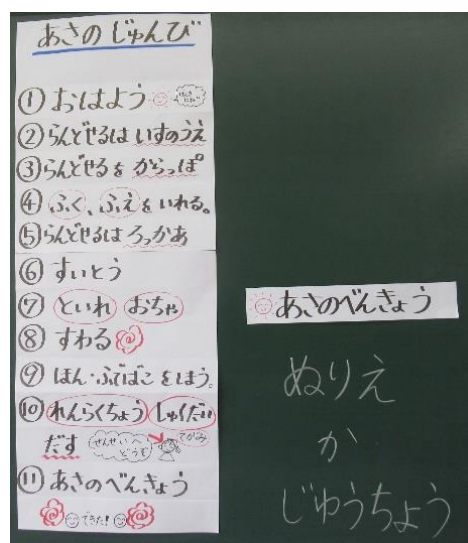 あさの じゅんび
①おはよう
②らんどせるは いすのうえ
③らんどせるを からっぽ
④ふく、ふえを いれる。
⑤らんどせるは ろっかあ
⑥すいとう
⑦といれ おちゃ
⑧すわる
⑨ほん・ふでばこ をしまう。
⑩れんらくちょう しゅくだい
だす せんせいへ どうぞ てがみ
⑪あさの べんきょう
できた!
あさのべんきょう
ぬりえ
か
じゆうちょう